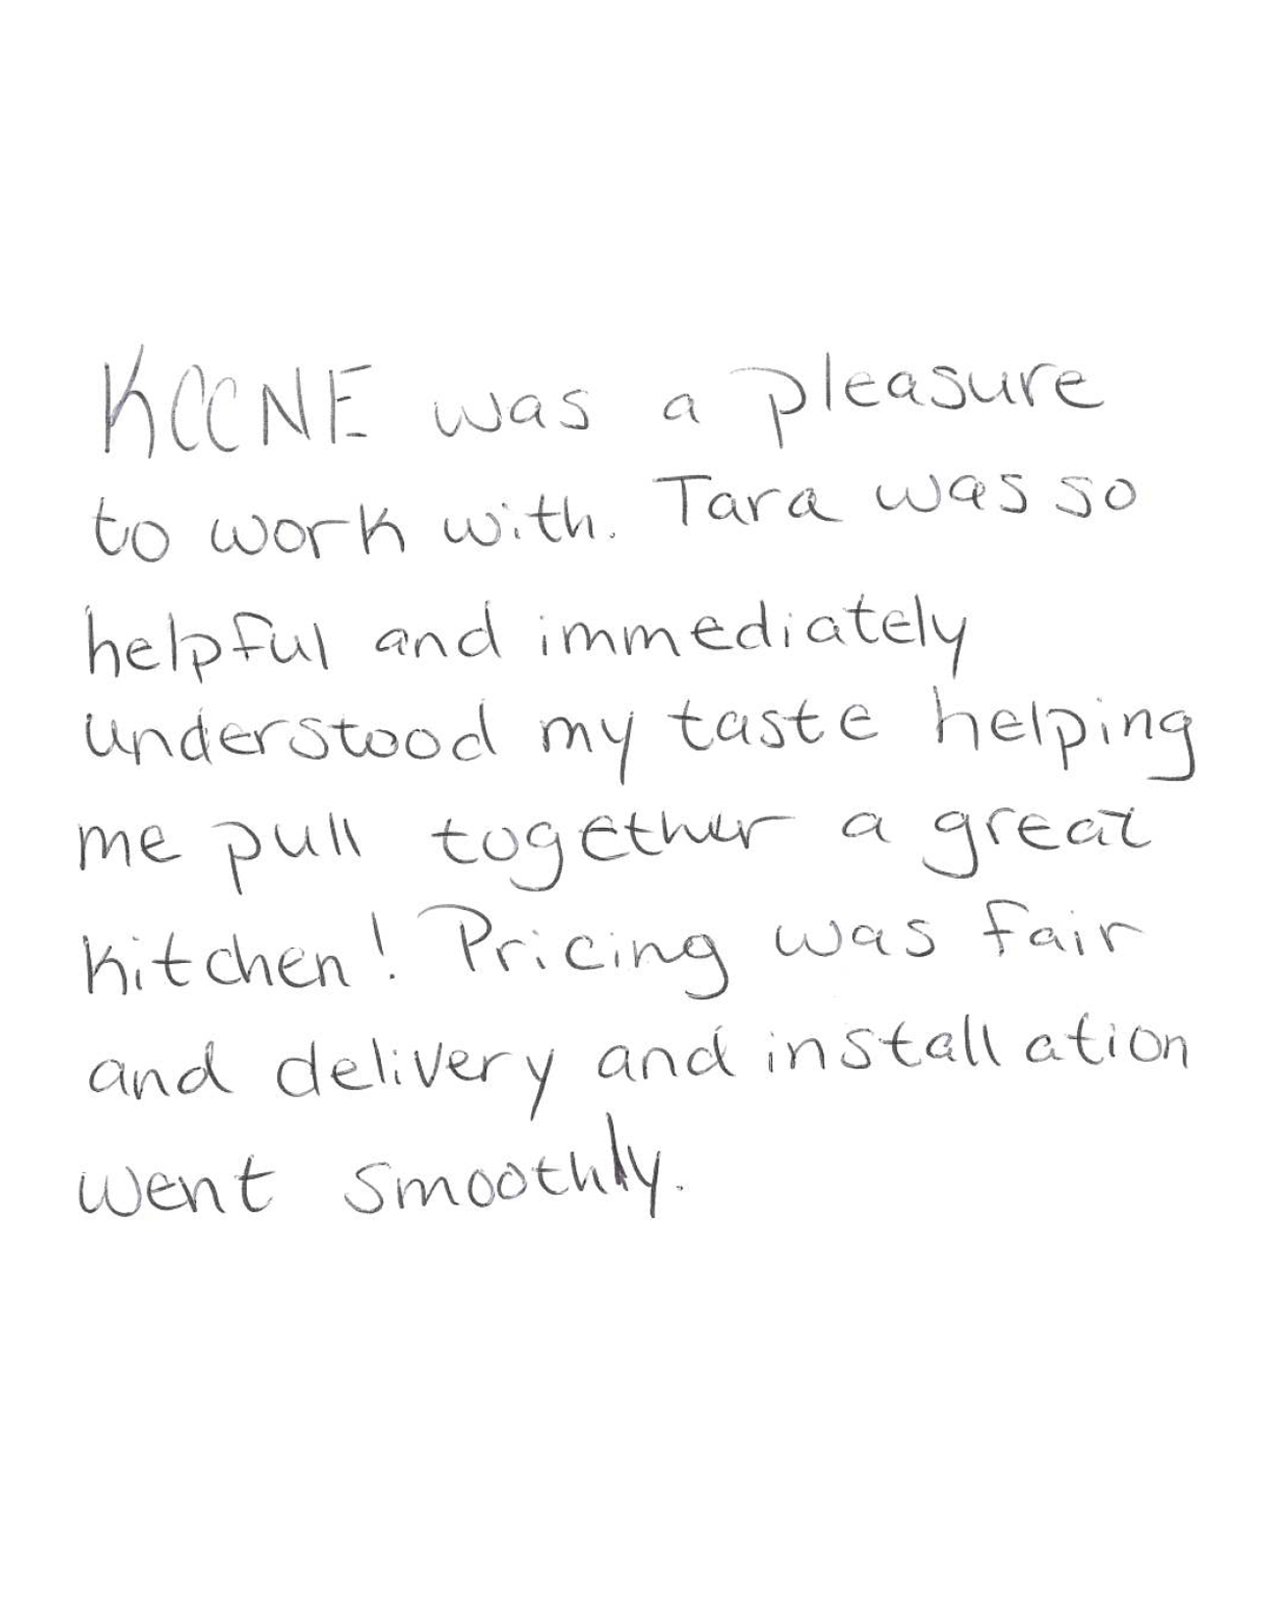 KCCNE was a pleasure
to work with. Tara was so
helpful and immediately
understood my taste helping
me pull together a great
kitchen! Pricing was fair
and delivery and installation
went smoothly.